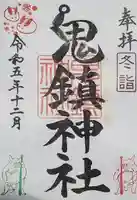 奉拝
冬詣
鬼鎮神社
令和五年十二月